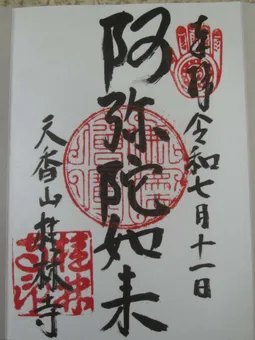 奉拝 令和七月十一日
阿弥陀如来
天香山 桂林寺